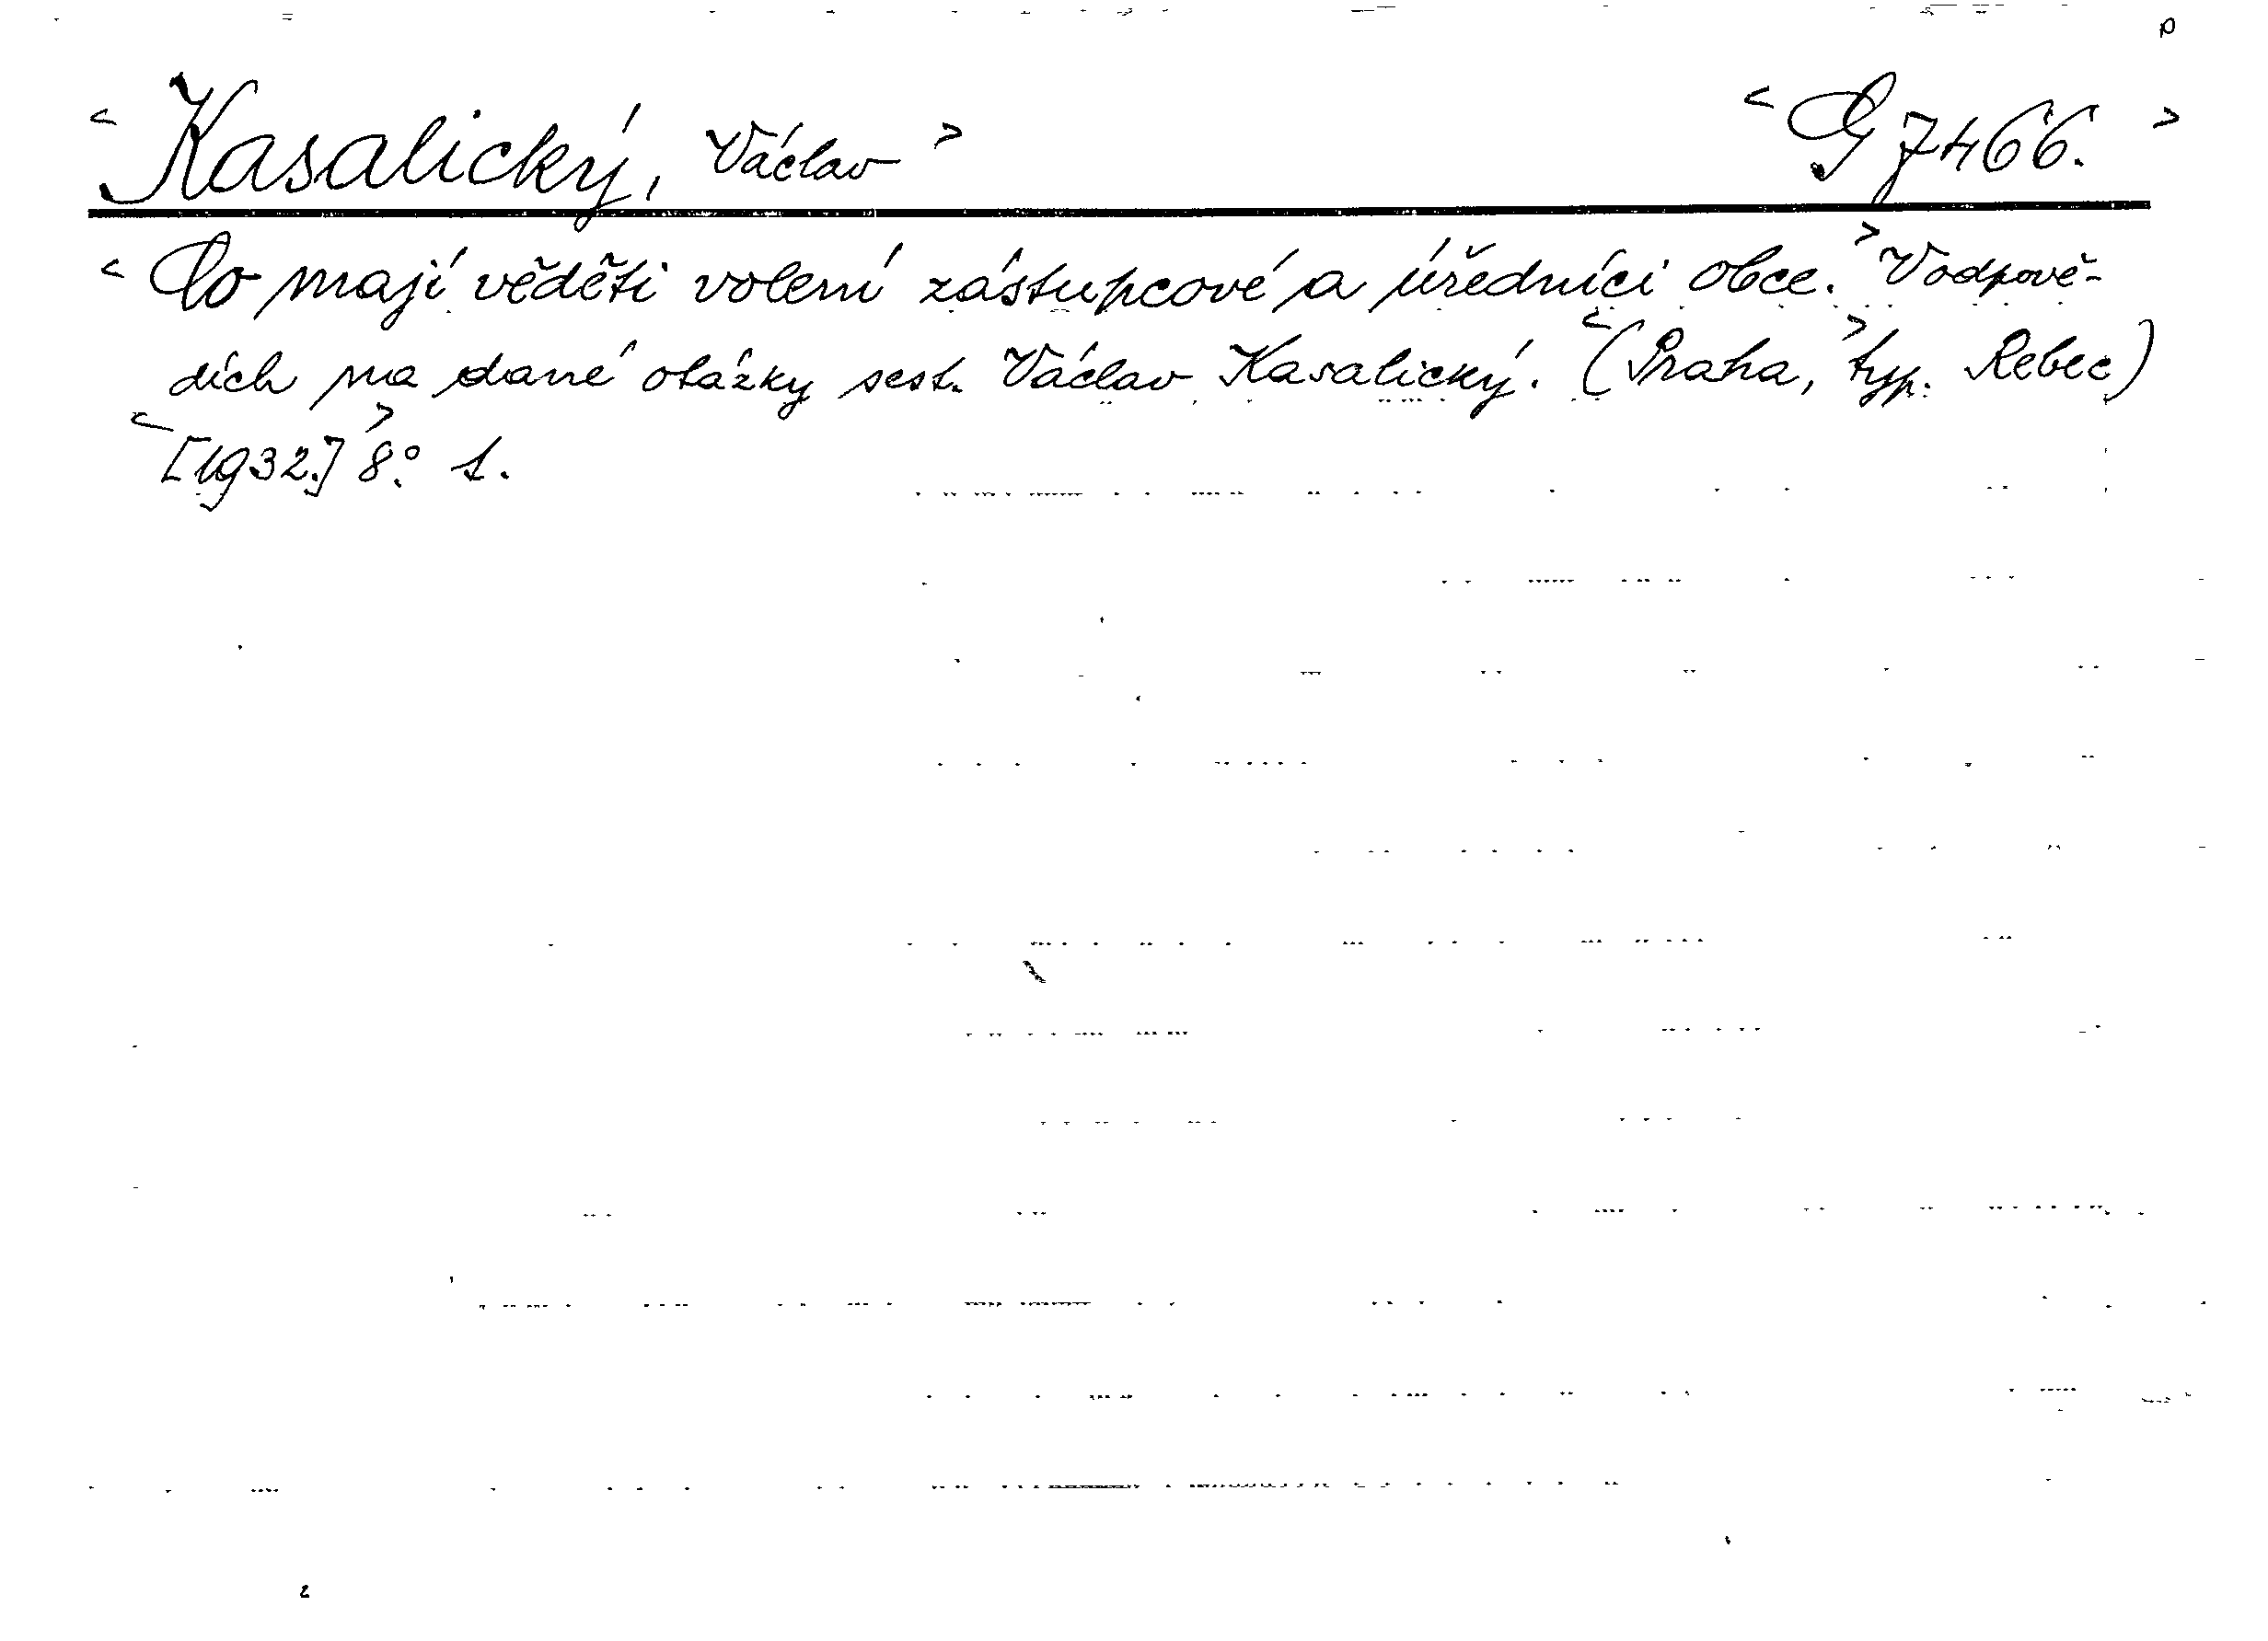 p
<Kasalický, Václav> <G 7466.>
<Co mají věděti volení zástupcové a úředníci obce.> V odpově-
dích na dané otázky sest. Václav Kasalický. <(Praha,> typ. Rebec)
<[1932.]> 8°. 1.